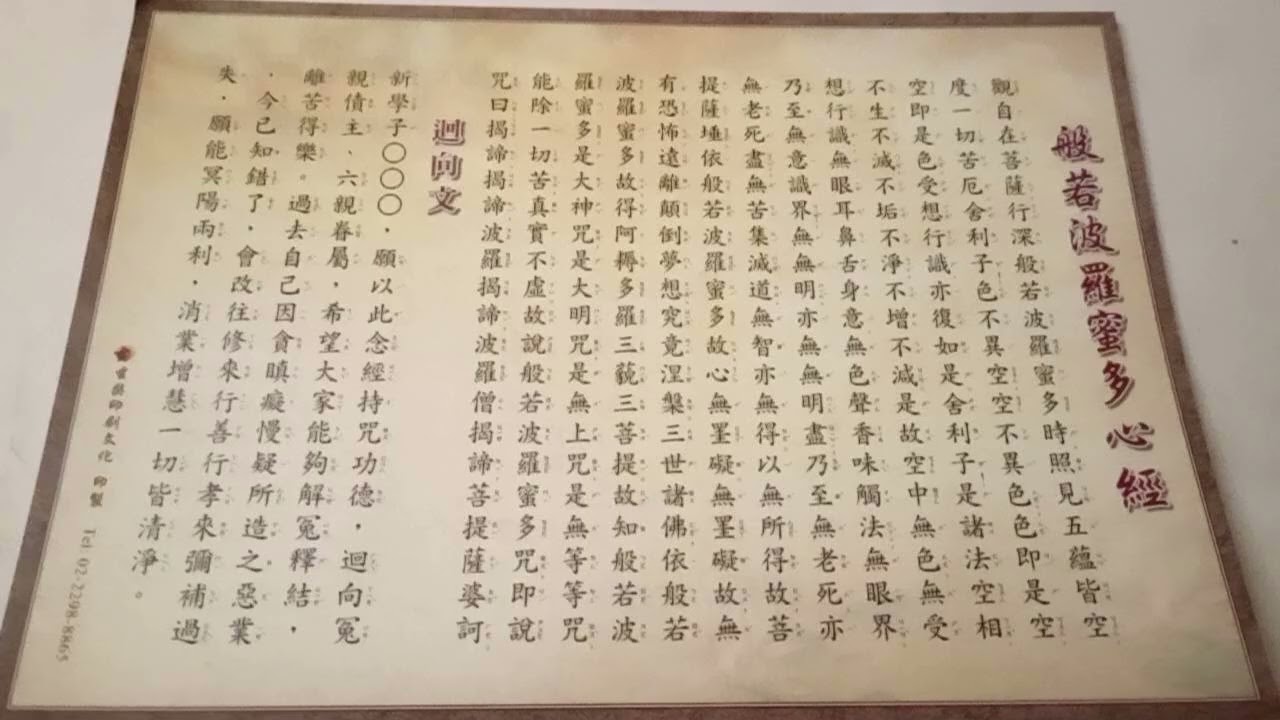 般若波羅蜜多心經
觀自在菩薩行深般若波羅蜜多時照見五蘊皆空
度一切苦厄舍利子色不異空空不異色色即是空
空即是色受想行識亦復如是舍利子是諸法空相
不生不滅不垢不淨不增不減是故空中無色無受
想行識無眼耳鼻舌身意無色聲香味觸法無眼界
乃至無意識界無無明亦無無明盡乃至無老死亦
無老死盡無苦集滅道無智亦無得以無所得故菩
提薩埵依般若波羅蜜多故心無罣礙無罣礙故無
有恐怖遠離顛倒夢想究竟涅槃三世諸佛依般若
波羅蜜多故得阿耨多羅三藐三菩提故知般若波
羅蜜多是大神咒是大明咒是無上咒是無等等咒
能除一切苦真實不虛故說般若波羅蜜多咒即說
咒曰揭諦揭諦波羅揭諦波羅僧揭諦菩提薩婆訶
迴向文
新學子〇〇〇,願以此念經持咒功德,迴向冤
親債主、六親眷屬,希望大家能夠解冤釋結,
離苦得樂。過去自己因貪瞋癡慢疑所造之惡業
,今已知錯了,會改往修來行善行孝來彌補過
失,願能冥陽兩利,消業增慧一切皆清淨。
文化 印製 Tel 02-2298-8865